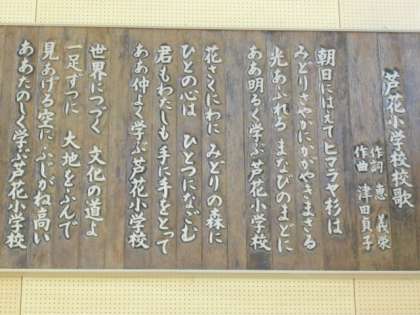 芦花小学校校歌
作詞 恵 義栄
作曲 津田貞子
朝日にはえてヒマラヤ杉は
みどりさやかにかがやきまさる
光あふれる まなびのまどに
ああ明るく学ぶ芦花小学校
花さくにわに みどりの森に
ひとの心は ひとつになごむ
君もわたしも手に手をとって
ああ仲よく学ぶ芦花小学校
世界につづく 文化の道よ
一足ずつに 大地をふんで
見あげる空に ふじがね高い
ああたのしく学ぶ芦花小学校